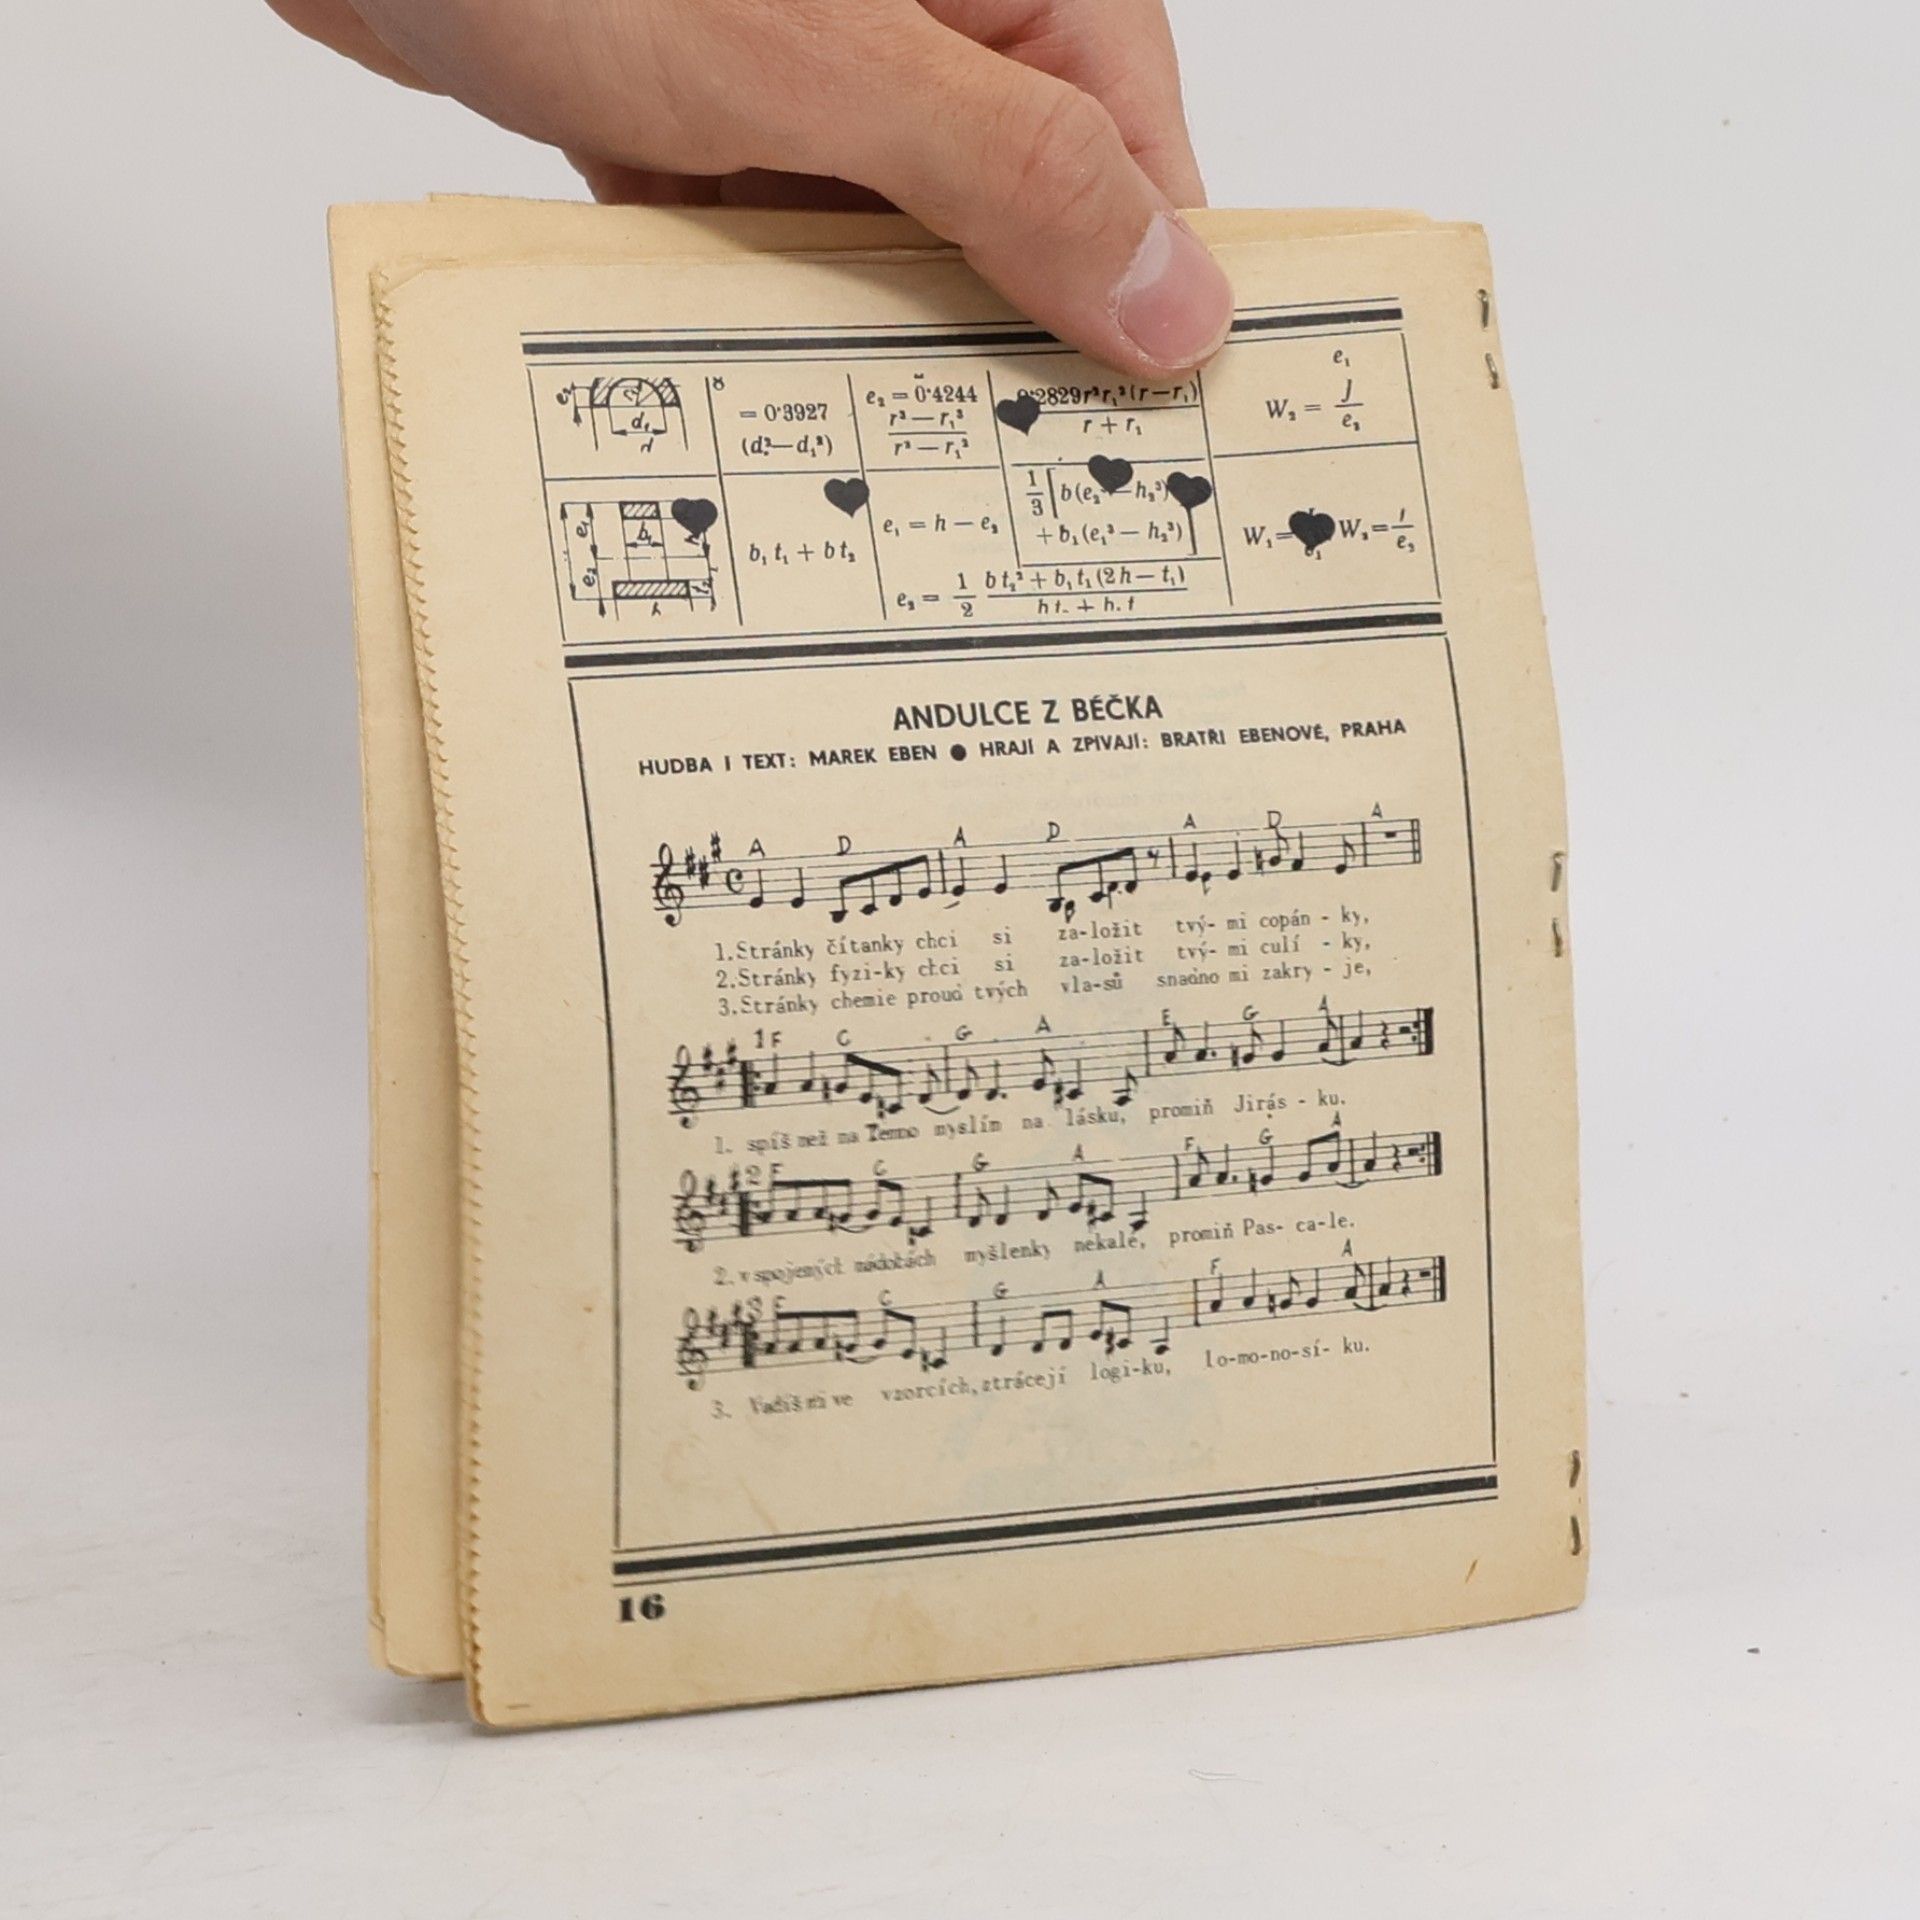 = 0·3927
e₂ = 0·4244
r³ — r₁³
r² — r₁²
r + r₁
W₂ =
e₁
J
e₂
d₁
e₂
e₁
b₁
b₁ t₁ + b t₂
e₁ = h — e₂
1/3 [ b(e₂ — h₂³)
+ b₁(e₁³ — h₂³) ]
e₂ = 1/2
b t₂² + b₁ t₁ (2 h — t₁)
W₁=
ANDULCE Z BÉČKA
HUDBA I TEXT: MAREK EBEN ● HRAJÍ A ZPÍVAJÍ: BRATŘI EBENOVÉ, PRAHA
A D A D A D A
1.Stránky čítanky chci si za-ložit tvý- mi copán - ky,
2.Stránky fyzi-ky chci si za-ložit tvý- mi culí - ky,
3.Stránky chemie proud tvých vla-sů snadno mi zakry - je,
1 F C G A E G A
1. spíš než na Temno myslím na lásku, promiň Jirás - ku.
2 F C G A F G A
2. v spojených nádobách myšlenky nekalé, promiň Pas- ca-le.
3 F C G A F A
3. Vadíš mi ve vzorcích, ztrácejí logi-ku, lo-mo-no-sí- ku.
16